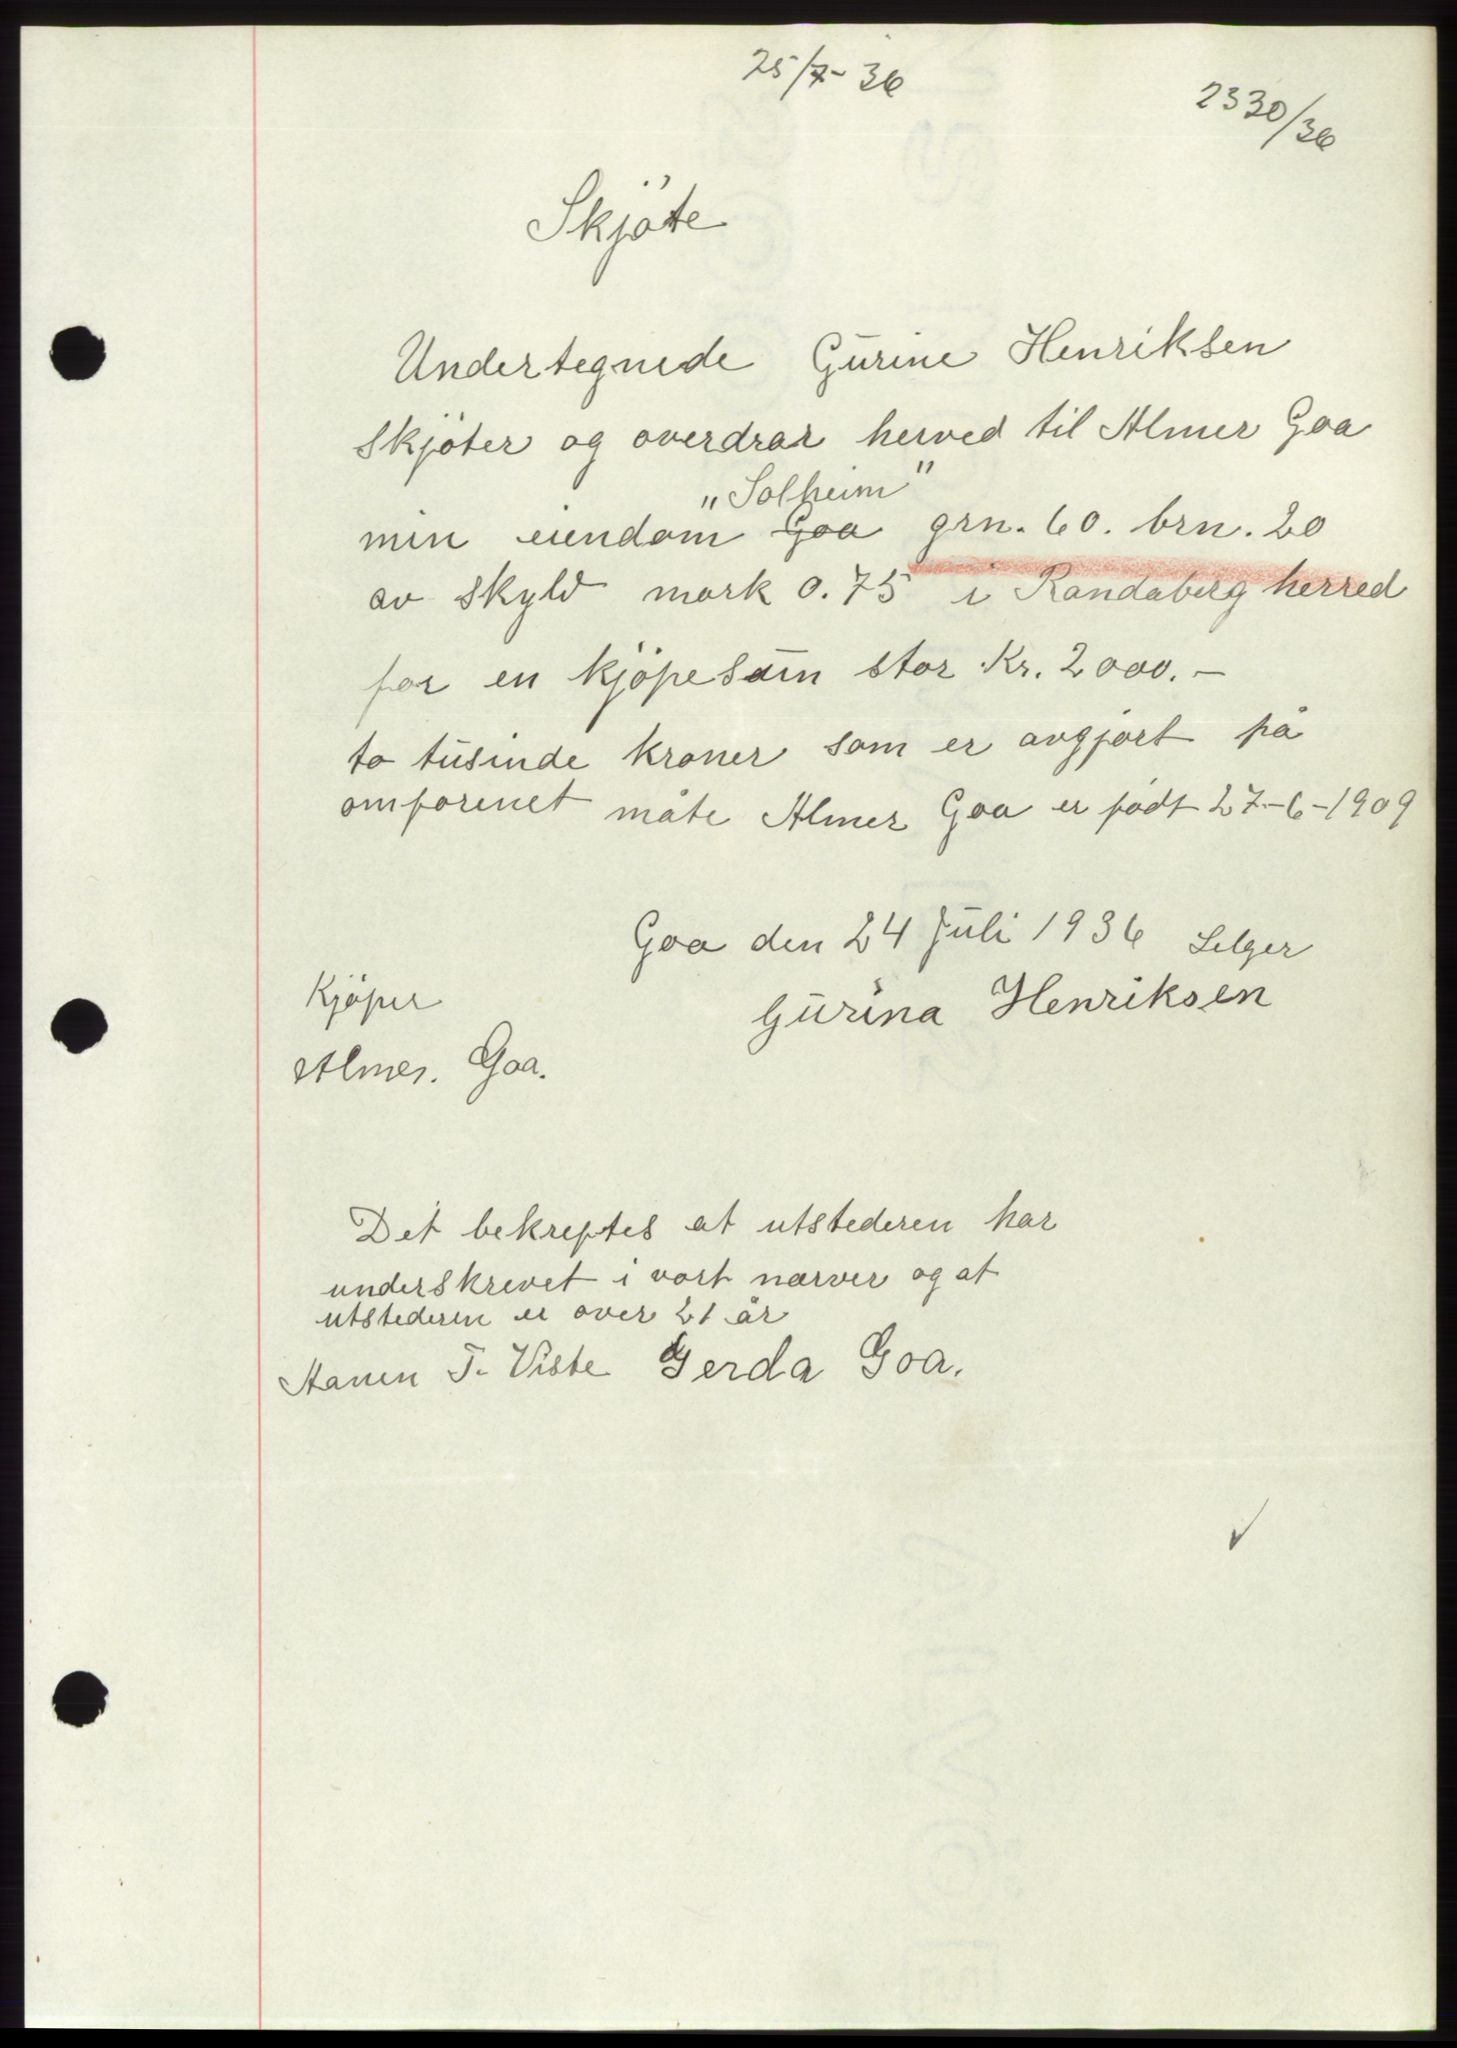 25/7-36
2330/36
Skjöte
Undertegnede Gurine Henriksen
skjöter og overdrar herved til Almer Goa
"Solheim"
min eiendom Goa grn. 60. brn. 20
av skyld mark 0.75 i Randaberg herred
for en kjöpesum stor Kr. 2000.-
to tusinde kroner som er avgjort på
omforenet måte Almer Goa er født 27-6-1909
Goa den 24 Juli 1936 Selger
Kjöper
Gurina Henriksen
Almer. Goa.
Det bekreftes at utstederen har
underskrevet i vort nærver og at
utstederen er over 21 år
T. Viste Gerda Goa.